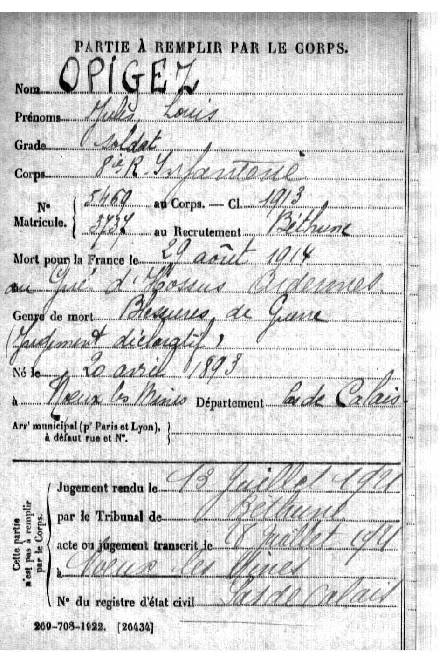 PARTIE À REMPLIR PAR LE CORPS.
Nom OPIGEZ
Prénoms Jules Louis
Grade Soldat
Corps 8ie R. Infanterie
N° Matricule. { 5460 au Corps. — Cl. 1913
3737 au Recrutement Béthune
Mort pour la France le 29 août 1914
au Gué d'Hossus Ardennes
Genre de mort Blessures de Guerre
(Jugement déclaratif)
Né le 20 avril 1893
à Noeux les Mines Département Pas de Calais
Arrt municipal (pr Paris et Lyon), à défaut rue et N°.
Cette partie n'est pas à remplir par le Corps.
Jugement rendu le 13 Juillet 1921
par le Tribunal de Béthune
acte ou jugement transcrit le Juillet 1921
à Noeux les Mines
N° du registre d'état civil Pas de Calais
269-708-1922. [26434]